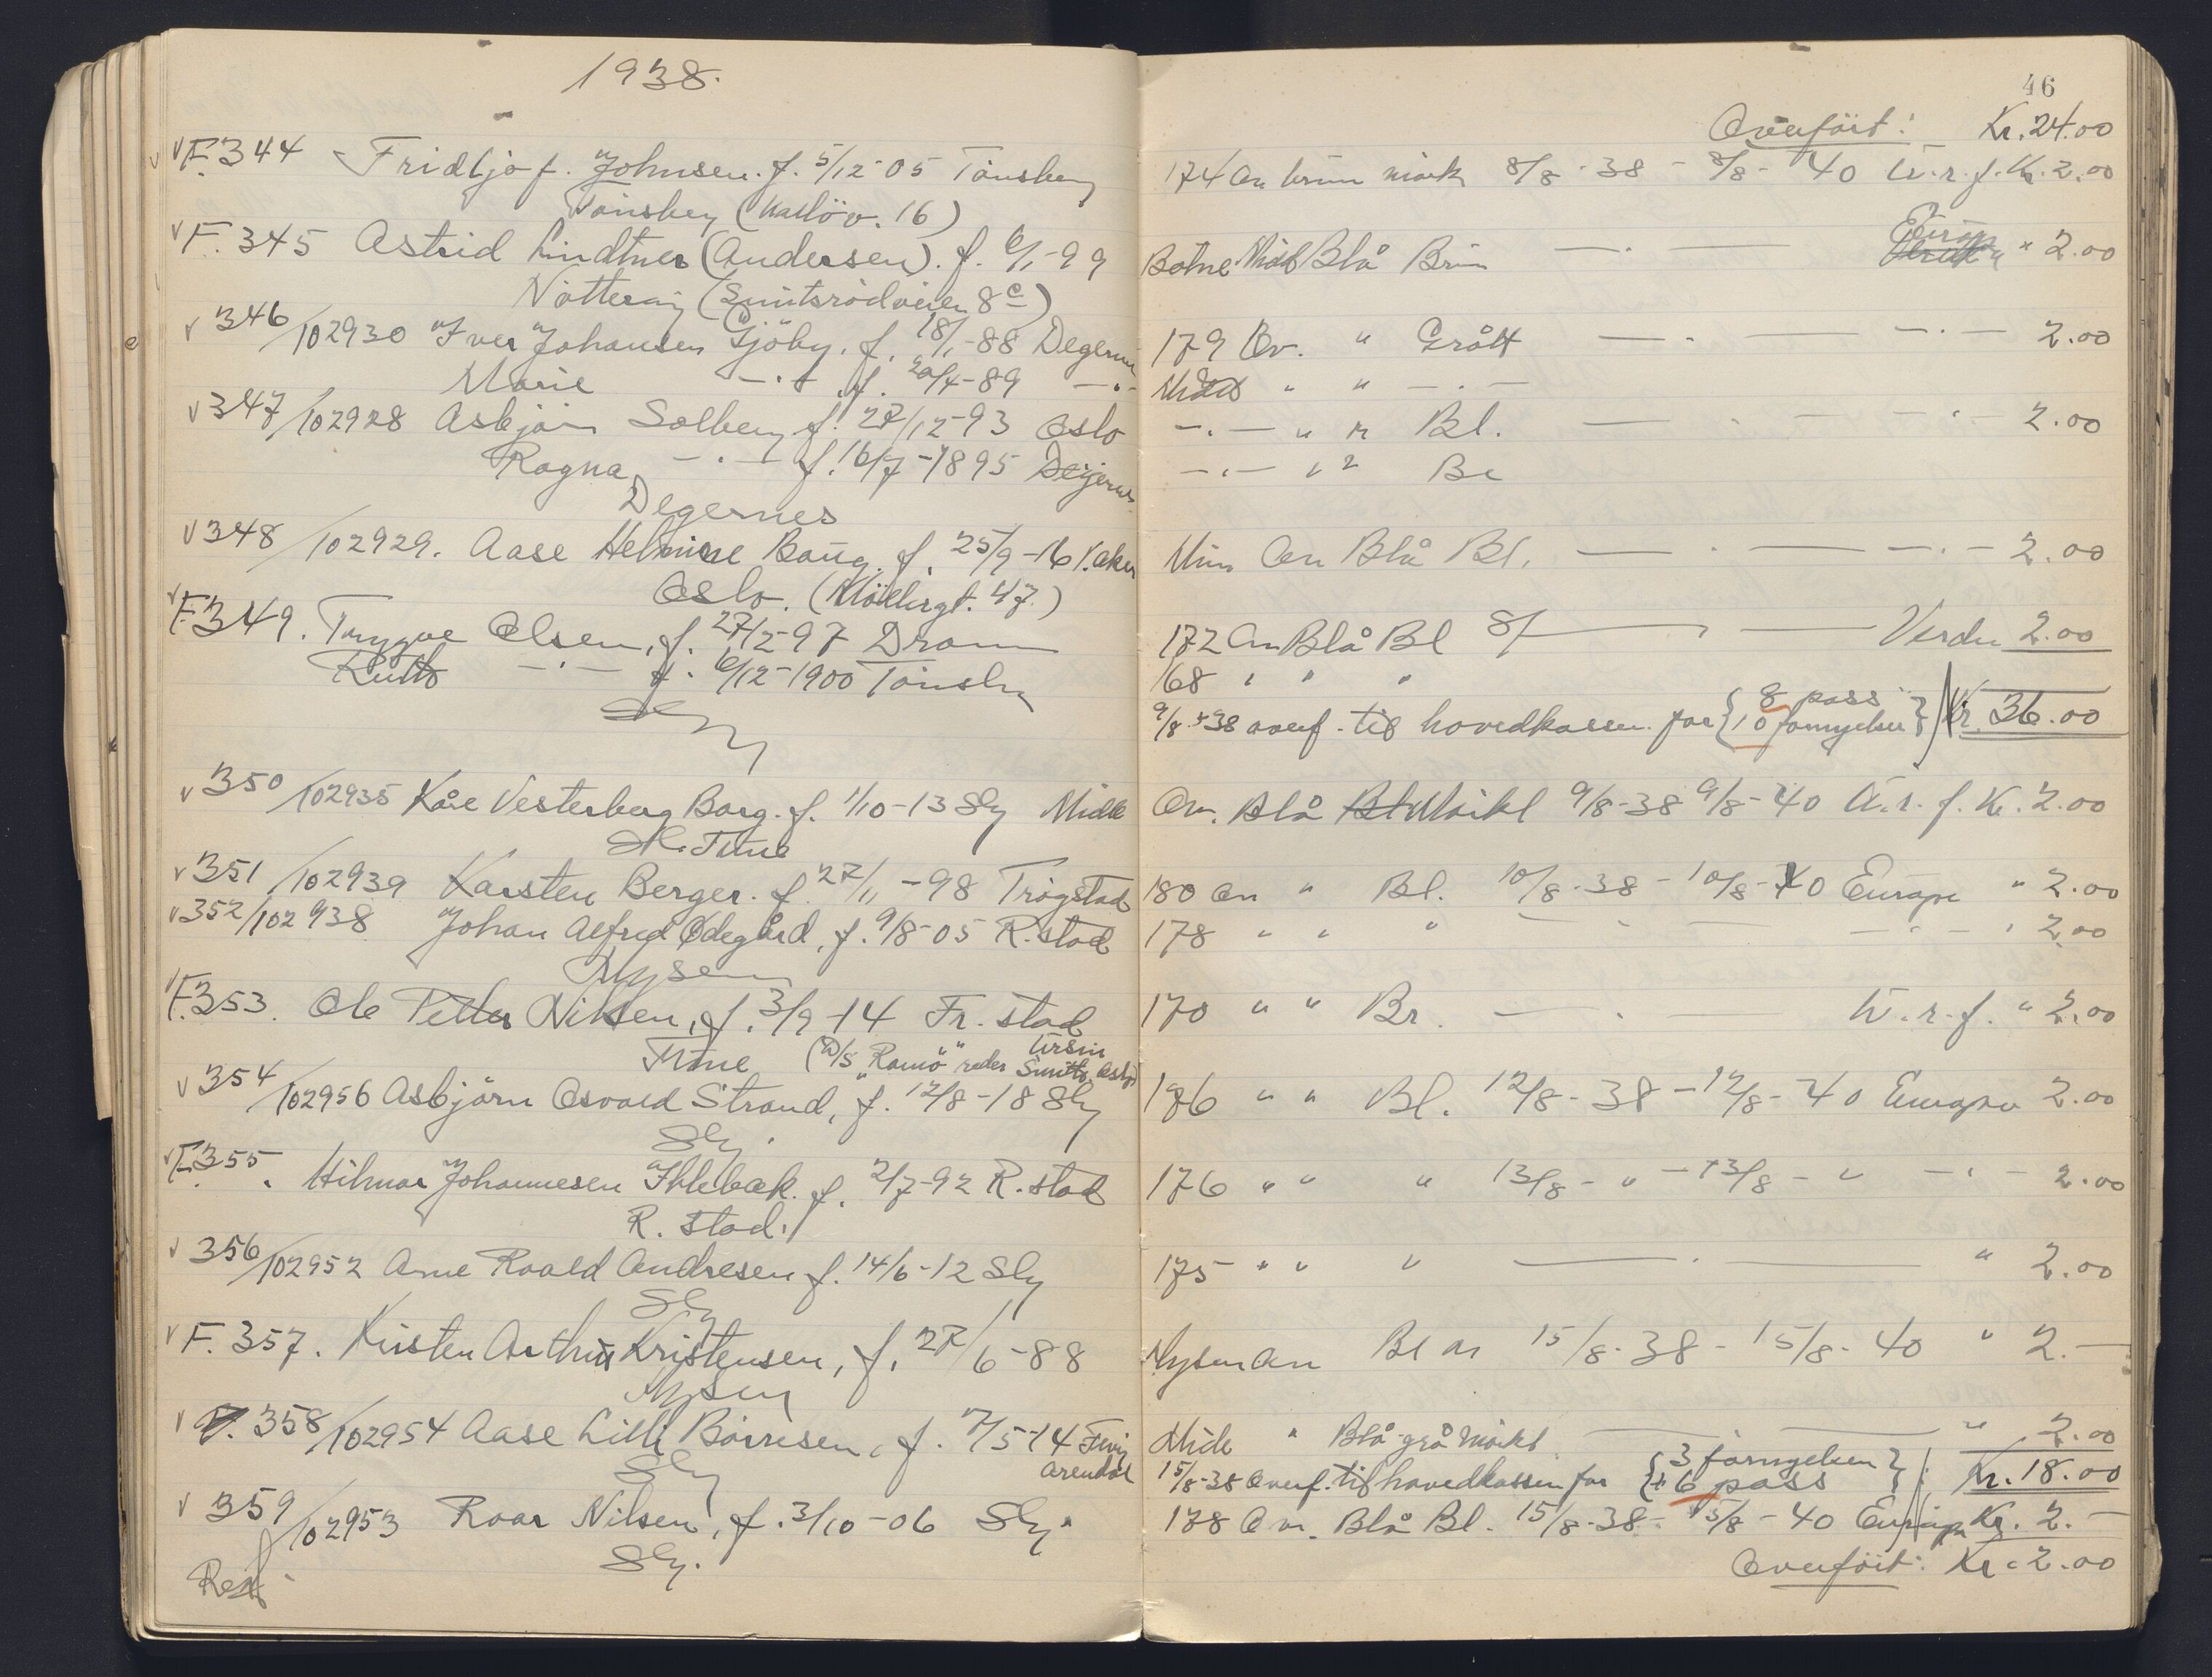 1938.
F.344 Fridtjof. Johnsen. f. 5/12-05 Tönsberg
Tönsberg (Kaslöv. 16)
F.345 Astrid Lindtner (Andersen). f. 6/1-99
Nötteröy (Smitsrödveien 8c)
346/102930 Iver Johansen Gjöby. f. 18/1-88 Degernes
Marie —.— f. 20/4-89 —.—
347/102928 Asbjörn Solberg f. 27/12-93 Oslo
Ragna —.— f. 16/7-1895 Degernes
Degernes
348/102929. Aase Helmine Baug. f. 25/9-16 V. Aker
Oslo. (Möllergt. 47.)
F.349. Trygve Olsen, f. 27/2-97 Dramm
Ruth —.— f. 6/12-1900 Tönsberg
Slg
350/102935 Kåre Vesterberg Borg. f. 1/10-13 Slg Midle
351/102939 Karsten Berger. f. 27/11-98 Trögstad
352/102938 Johan Alfred Ödegård, f. 9/8-05 R.stad
Mysen
F.353. Ole Petter Nilsen, f. 3/9-14 Fr. stad
Time (D/S "Ramö" reder Ursin Smith, Oslo)
354/102956 Asbjörn Osvald Strand, f. 12/8-18 Slg
Slg.
F.355. Hilmar Johannesen Ihlebæk. f. 2/7-92 R.stad
R. stad.
356/102952 Arne Roald Andresen f. 14/6-12 Slg
Slg
F.357. Kristen Arthur Kristensen, f. 27/6-88
Mysen
358/102954 Aase Lilli Börresen, f. 7/5-14
Slg Arendal
359/102953 Roar Nilsen, f. 3/10-06 Slg.
Slg.
46
Overfört: Kr. 24.00
174 Ov brun mörk 8/8-38 - 8/8-40 U.r.f. Kr. 2.00
Europa
Botne Midd Blå Brun —.— " 2.00
179 Ov. " Grått —.— —.— 2.00
Midd " " —.—
—.— " " Bl. —.— —.— 2.00
—.— " " Bl
Min Ov Blå Bl. —.— —.— 2.00
172 Ov Blå Bl 8/ —.— Verden 2.00
168 " " "
9/8-38 overf. til hovedkassen for {8 pass 10 fornyelser} Kr. 36.00
Ov. Blå Mörkt 9/8-38 9/8-40 U.r.f. Kr. 2.00
180 Ov " Bl. 10/8-38 - 10/8-40 Europa " 2.00
178 " " " —.— —.— " 2.00
170 " " Br. —.— U.r.f. " 2.00
176 " " Bl. 12/8-38 - 12/8-40 Europa 2.00
176 " " " 13/8-" - 13/8-" —.— 2.00
175 " " " —.— " 2.00
Mysen Ov Bl m 15/8-38 - 15/8-40 " 2.—
Midd " Blå-grå Mörkt — — " 2.00
15/8-38 Overf. til hovedkassen for {3 fornyelser + 6 pass} Kr. 18.00
178 Ov. Blå Bl. 15/8-38 - 15/8-40 Europa Kr. 2.—
Overfört: Kr. 2.00